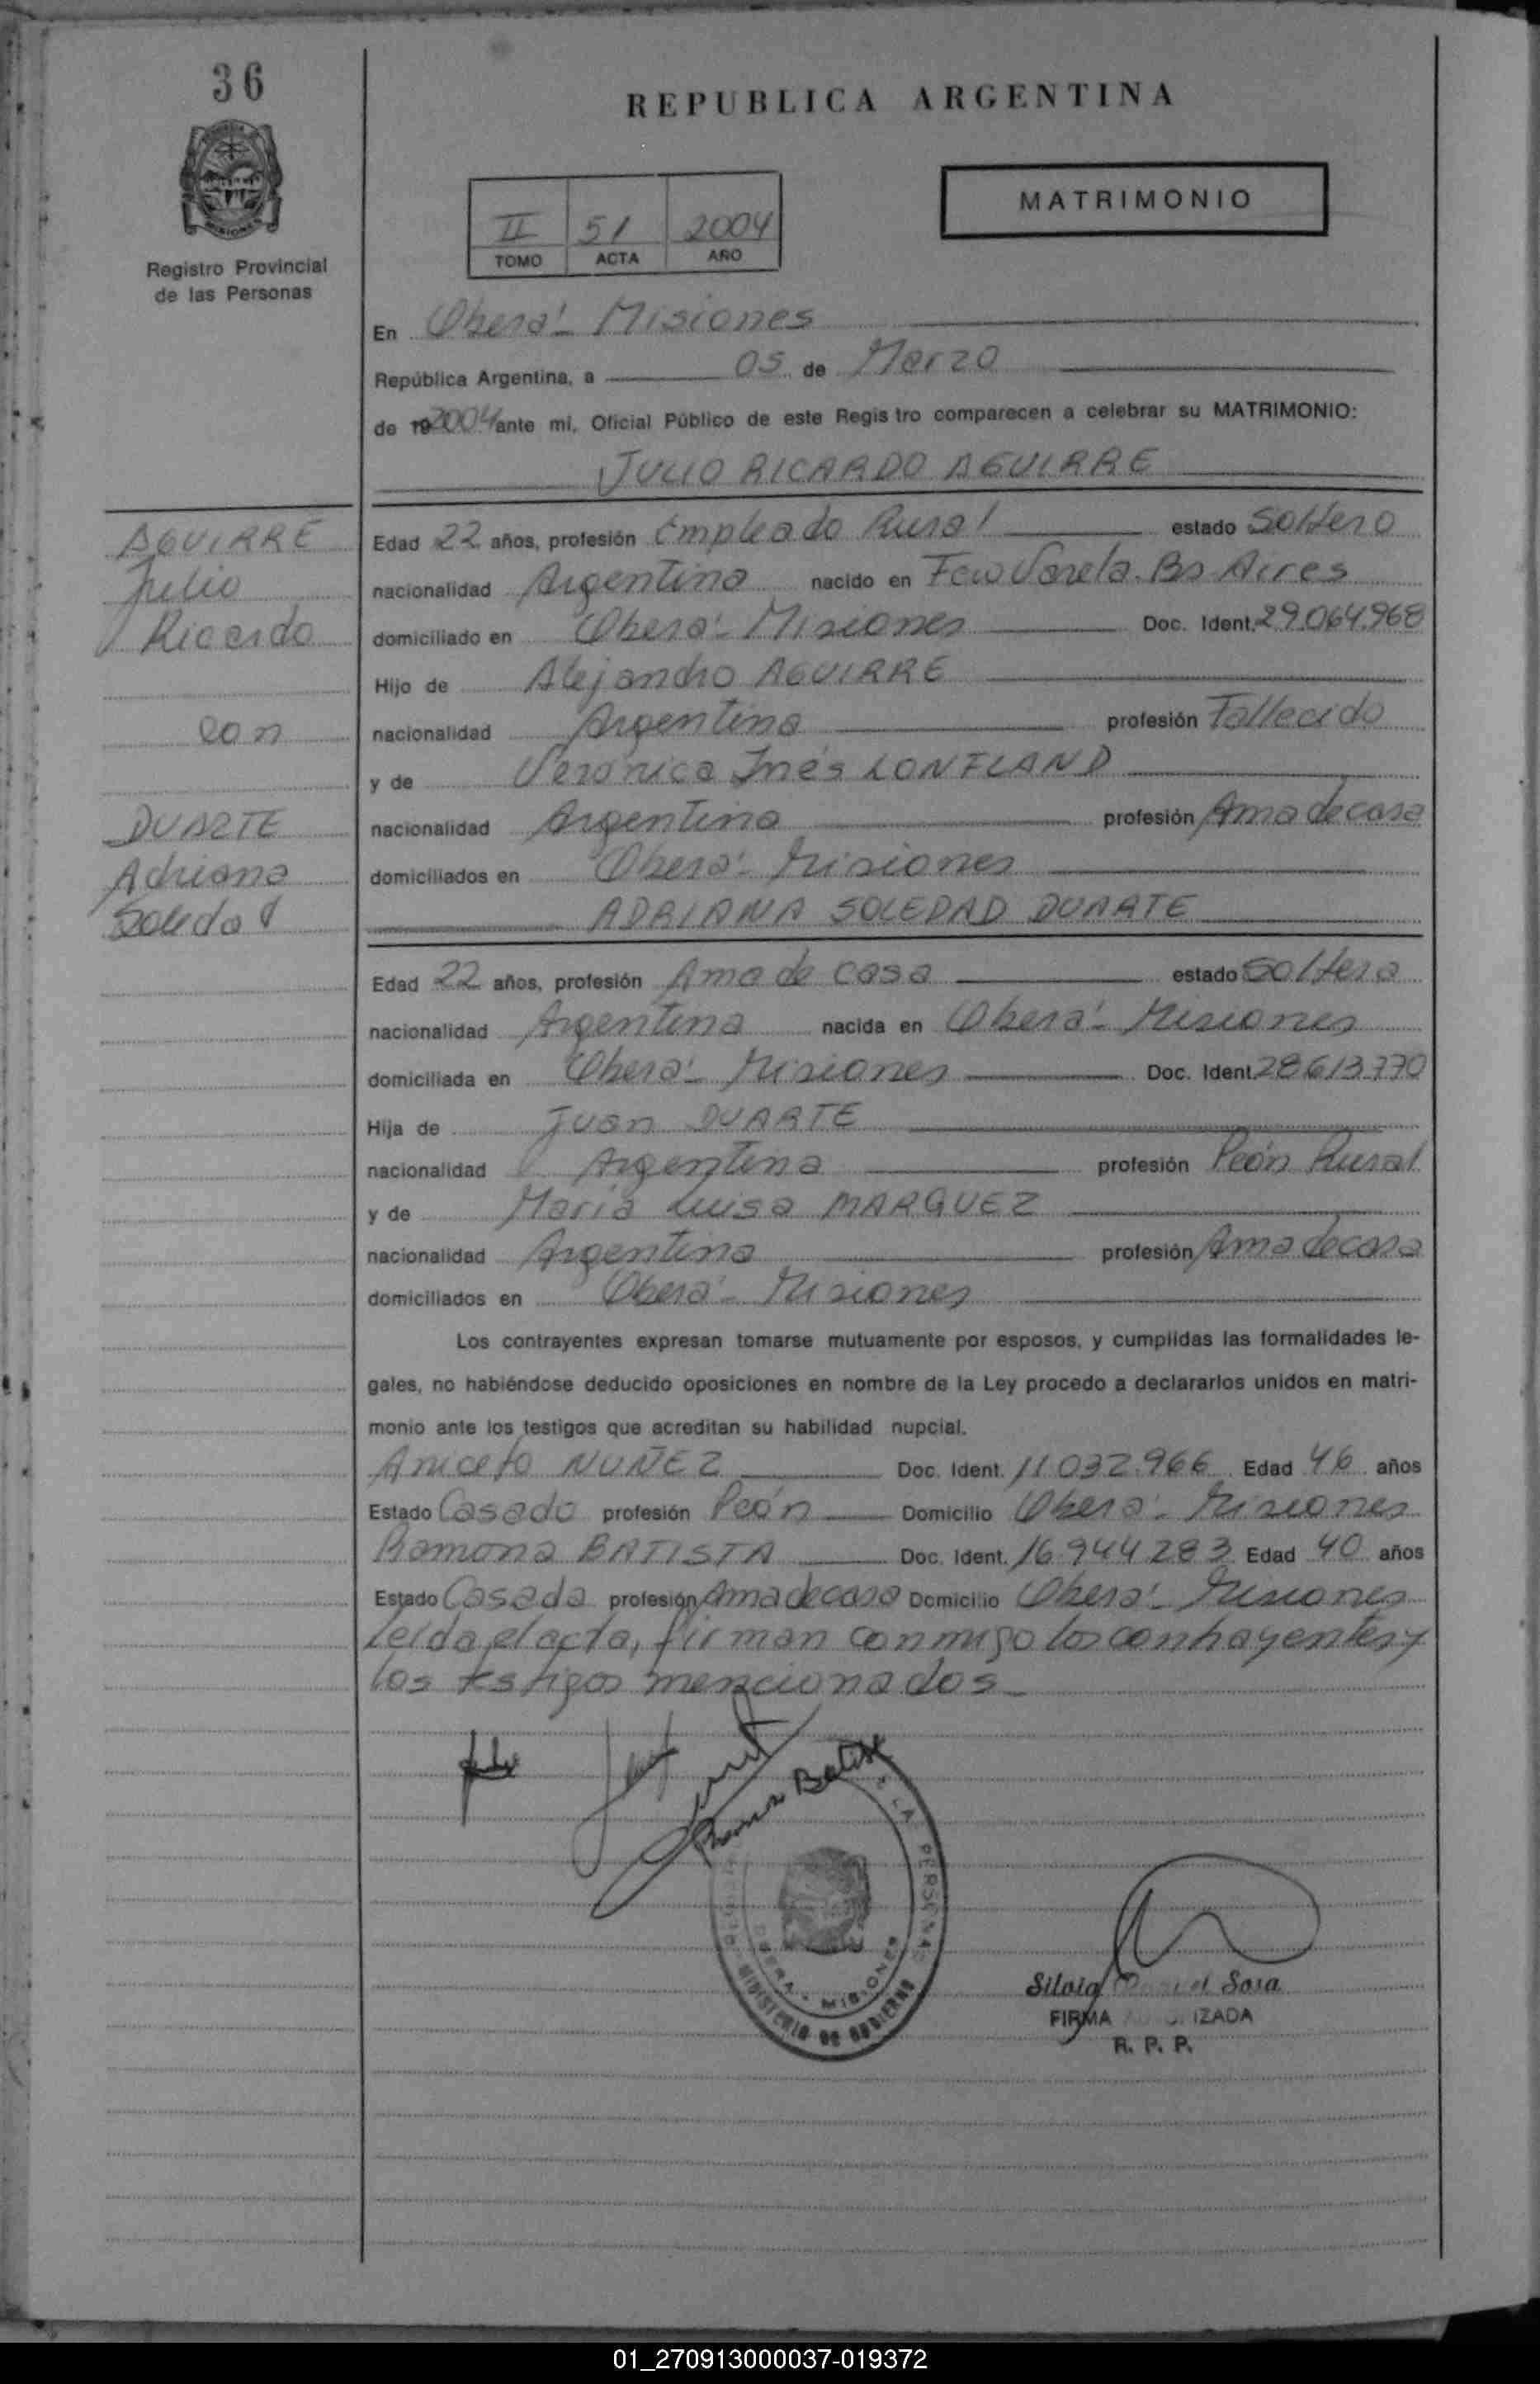 36
REPUBLICA ARGENTINA
MATRIMONIO
II 51 2004
TOMO ACTA AÑO
Registro Provincial
de las Personas
En Oberá - Misiones
República Argentina, a 05 de Marzo
de 19 2004 ante mi, Oficial Público de este Regis tro comparecen a celebrar su MATRIMONIO:
JULIO RICARDO AGUIRRE
AGUIRRE
Julio
Ricardo
con
DUARTE
Adriana
Soledad
Edad 22 años, profesión Empleado Rural estado Soltero
nacionalidad Argentina nacido en Fcio Varela. Bs Aires
domiciliado en Oberá - Misiones Doc. Ident. 29.064.968
Hijo de Alejandro AGUIRRE
nacionalidad Argentina profesión Fallecido
y de Verónica Inés LONFLAND
nacionalidad Argentina profesión Ama de casa
domiciliados en Oberá - Misiones
ADRIANA SOLEDAD DUARTE
Edad 22 años, profesión Ama de casa estado Soltera
nacionalidad Argentina nacida en Oberá - Misiones
domiciliada en Oberá - Misiones Doc. Ident. 28613.770
Hija de Juan DUARTE
nacionalidad Argentina profesión Peón Rural
y de María Luisa MARQUEZ
nacionalidad Argentina profesión Ama de casa
domiciliados en Oberá - Misiones
Los contrayentes expresan tomarse mutuamente por esposos, y cumplidas las formalidades le-
gales, no habiéndose deducido oposiciones en nombre de la Ley procedo a declararlos unidos en matri-
monio ante los testigos que acreditan su habilidad nupcial.
Aniceto NUÑEZ Doc. Ident. 11.032.966 Edad 46 años
Estado Casado profesión Peón Domicilio Oberá - Misiones
Ramona BATISTA Doc. Ident. 16.944.283 Edad 40 años
Estado Casada profesión Ama de casa Domicilio Oberá - Misiones
Leída el acta, firman conmigo los contrayentes y
los testigos mencionados
LA PERSONAS
OBERA - MISIONES
MINISTERIO DE GOBIERNO
Silvia Sosa
FIRMA AUTORIZADA
R. P. P.
01_270913000037-019372